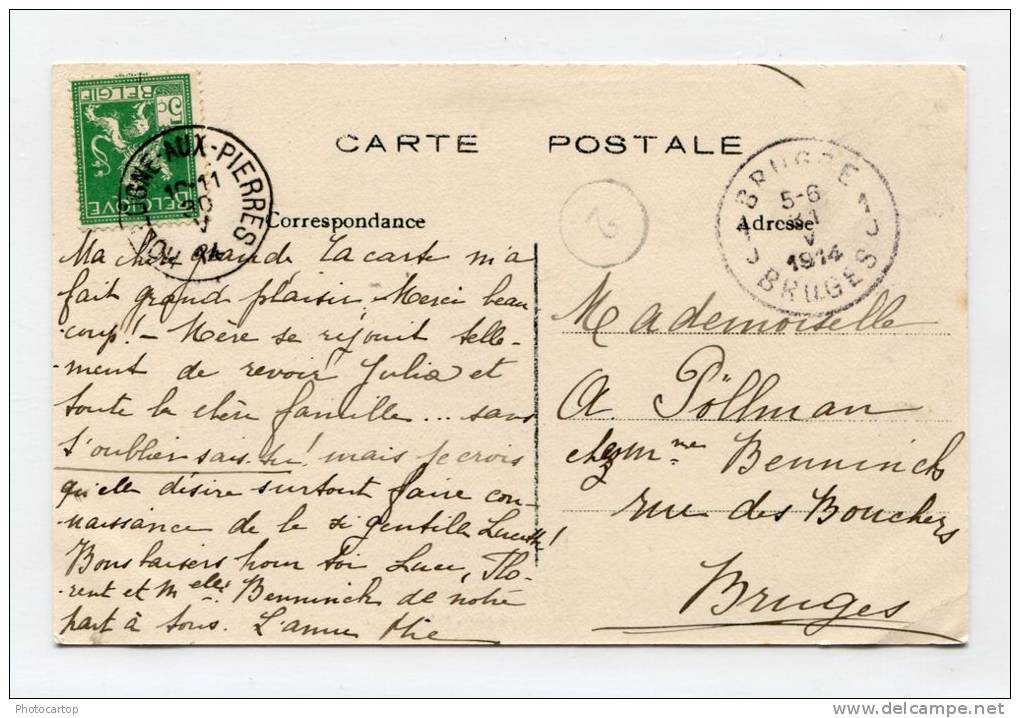 BELGIË
5c
BELGIQUE
AUX-PIERRES
CARTE POSTALE
Correspondance
Adresse
2
BRUGGE 1
5-6
31
V
1914
BRUGES
Ma chère grande La carte m'a
fait grand plaisir. Merci beau
-coup! - Mère se réjouit telle-
-ment de revoir Julia et
toute la chère famille ... sans
t'oublier sais-tu! mais je crois
qu'elle désire surtout faire con-
-naissance de la si gentille Lucette!
Bons baisers pour toi Luce, Flo-
-rent et Melles Benninck de notre
part à tous. L'amie
Mademoiselle
A. Pöllman
chez Mme Benninck
rue des Bouchers
Bruges
Photocartop
www.delcampe.net